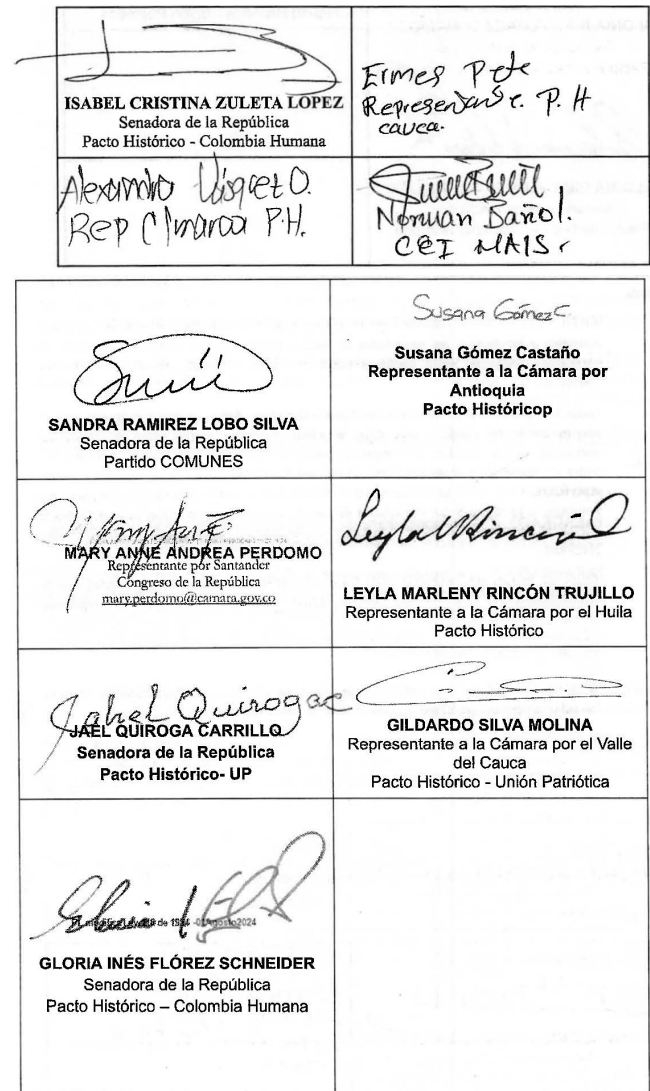 ISABEL CRISTINA ZULETA LOPEZ
Senadora de la República
Pacto Histórico - Colombia Humana
Ermes Pete
Representante. P. H
cauca.
Alexandra Vásquez O.
Rep Cámara P.H.
Norman Bañol.
CEI MAIS
SANDRA RAMIREZ LOBO SILVA
Senadora de la República
Partido COMUNES
Susana Gómez C
Susana Gómez Castaño
Representante a la Cámara por
Antioquia
Pacto Históricop
MARY ANNE ANDREA PERDOMO
Representante por Santander
Congreso de la República
mary.perdomo@camara.gov.co
Leyla M Rincón
LEYLA MARLENY RINCÓN TRUJILLO
Representante a la Cámara por el Huila
Pacto Histórico
Jahel Quiroga C
JAEL QUIROGA CARRILLO
Senadora de la República
Pacto Histórico- UP
GILDARDO SILVA MOLINA
Representante a la Cámara por el Valle
del Cauca
Pacto Histórico - Unión Patriótica
de 1994 -01Agosto2024
GLORIA INÉS FLÓREZ SCHNEIDER
Senadora de la República
Pacto Histórico – Colombia Humana